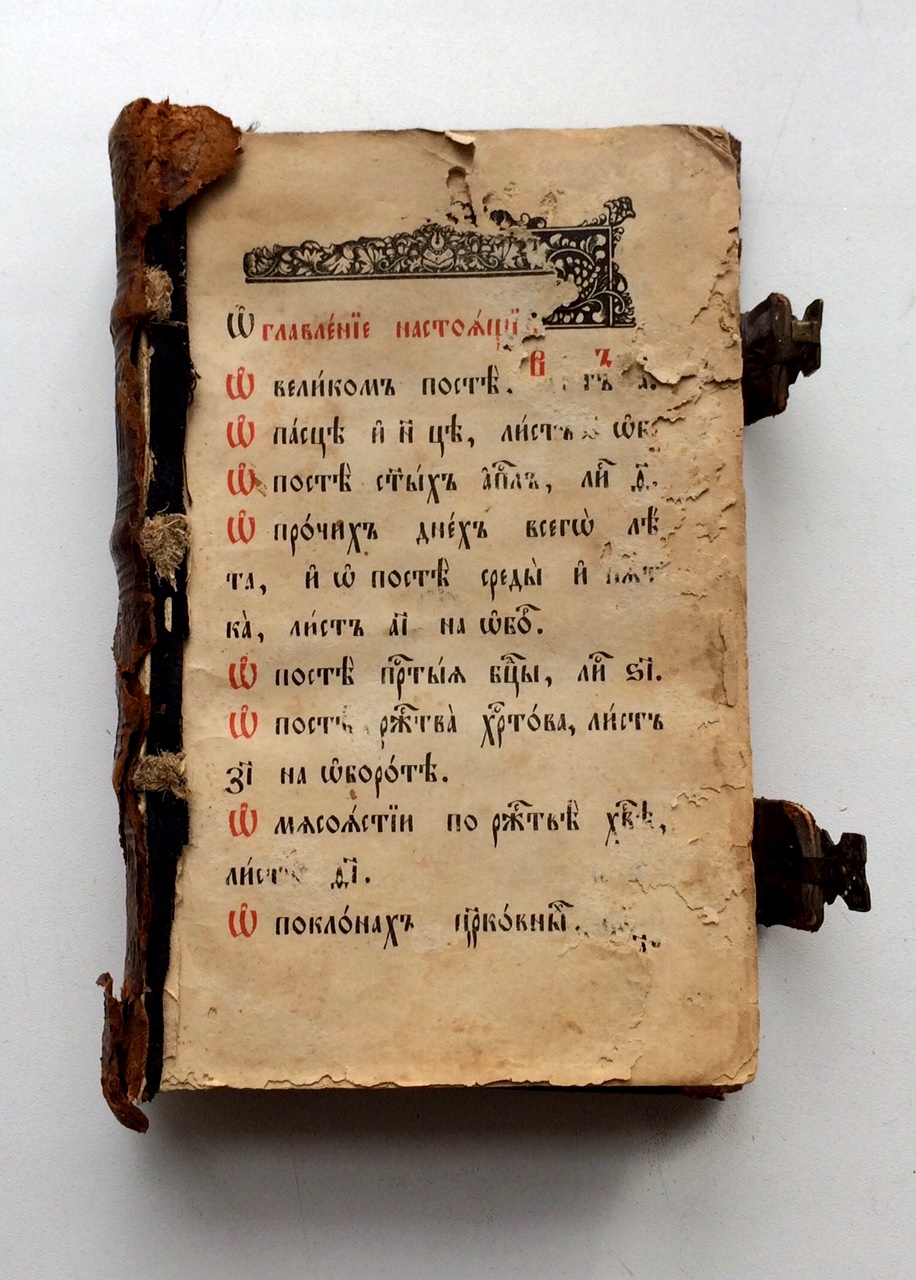 Ѡ҆главле́нїе настоѧ́щїѧ
Ѡ҆ вели́комъ постѣ̀.
Ѡ҆ па́сцѣ и҆ н҃ цѣ, ли́стъ ѡ҆б
Ѡ҆ постѣ̀ ст҃ы́хъ а҆пⷭ҇лъ, лиⷭ҇ д҃.
Ѡ҆ про́чихъ дне́хъ всегѡ̀ лѣ́
та, и҆ ѡ҆ постѣ̀ среды̀ и҆ пѧт
ка̀, ли́стъ а҃і на ѡ҆боⷬ҇.
Ѡ҆ постѣ̀ прⷭ҇ты́ѧ бцⷣы, лиⷭ҇ ѕ҃і.
Ѡ҆ постѣ̀ ржⷭ҇тва̀ хрⷭ҇то́ва, ли́стъ
з҃і на ѡ҆боро́тѣ.
Ѡ҆ мѧсоѧ́стїи по ржⷭ҇твѣ̀ хв҃ѣ,
ли́стъ д҃і.
Ѡ҆ покло́нахъ цр҃ко́вныⷯ.